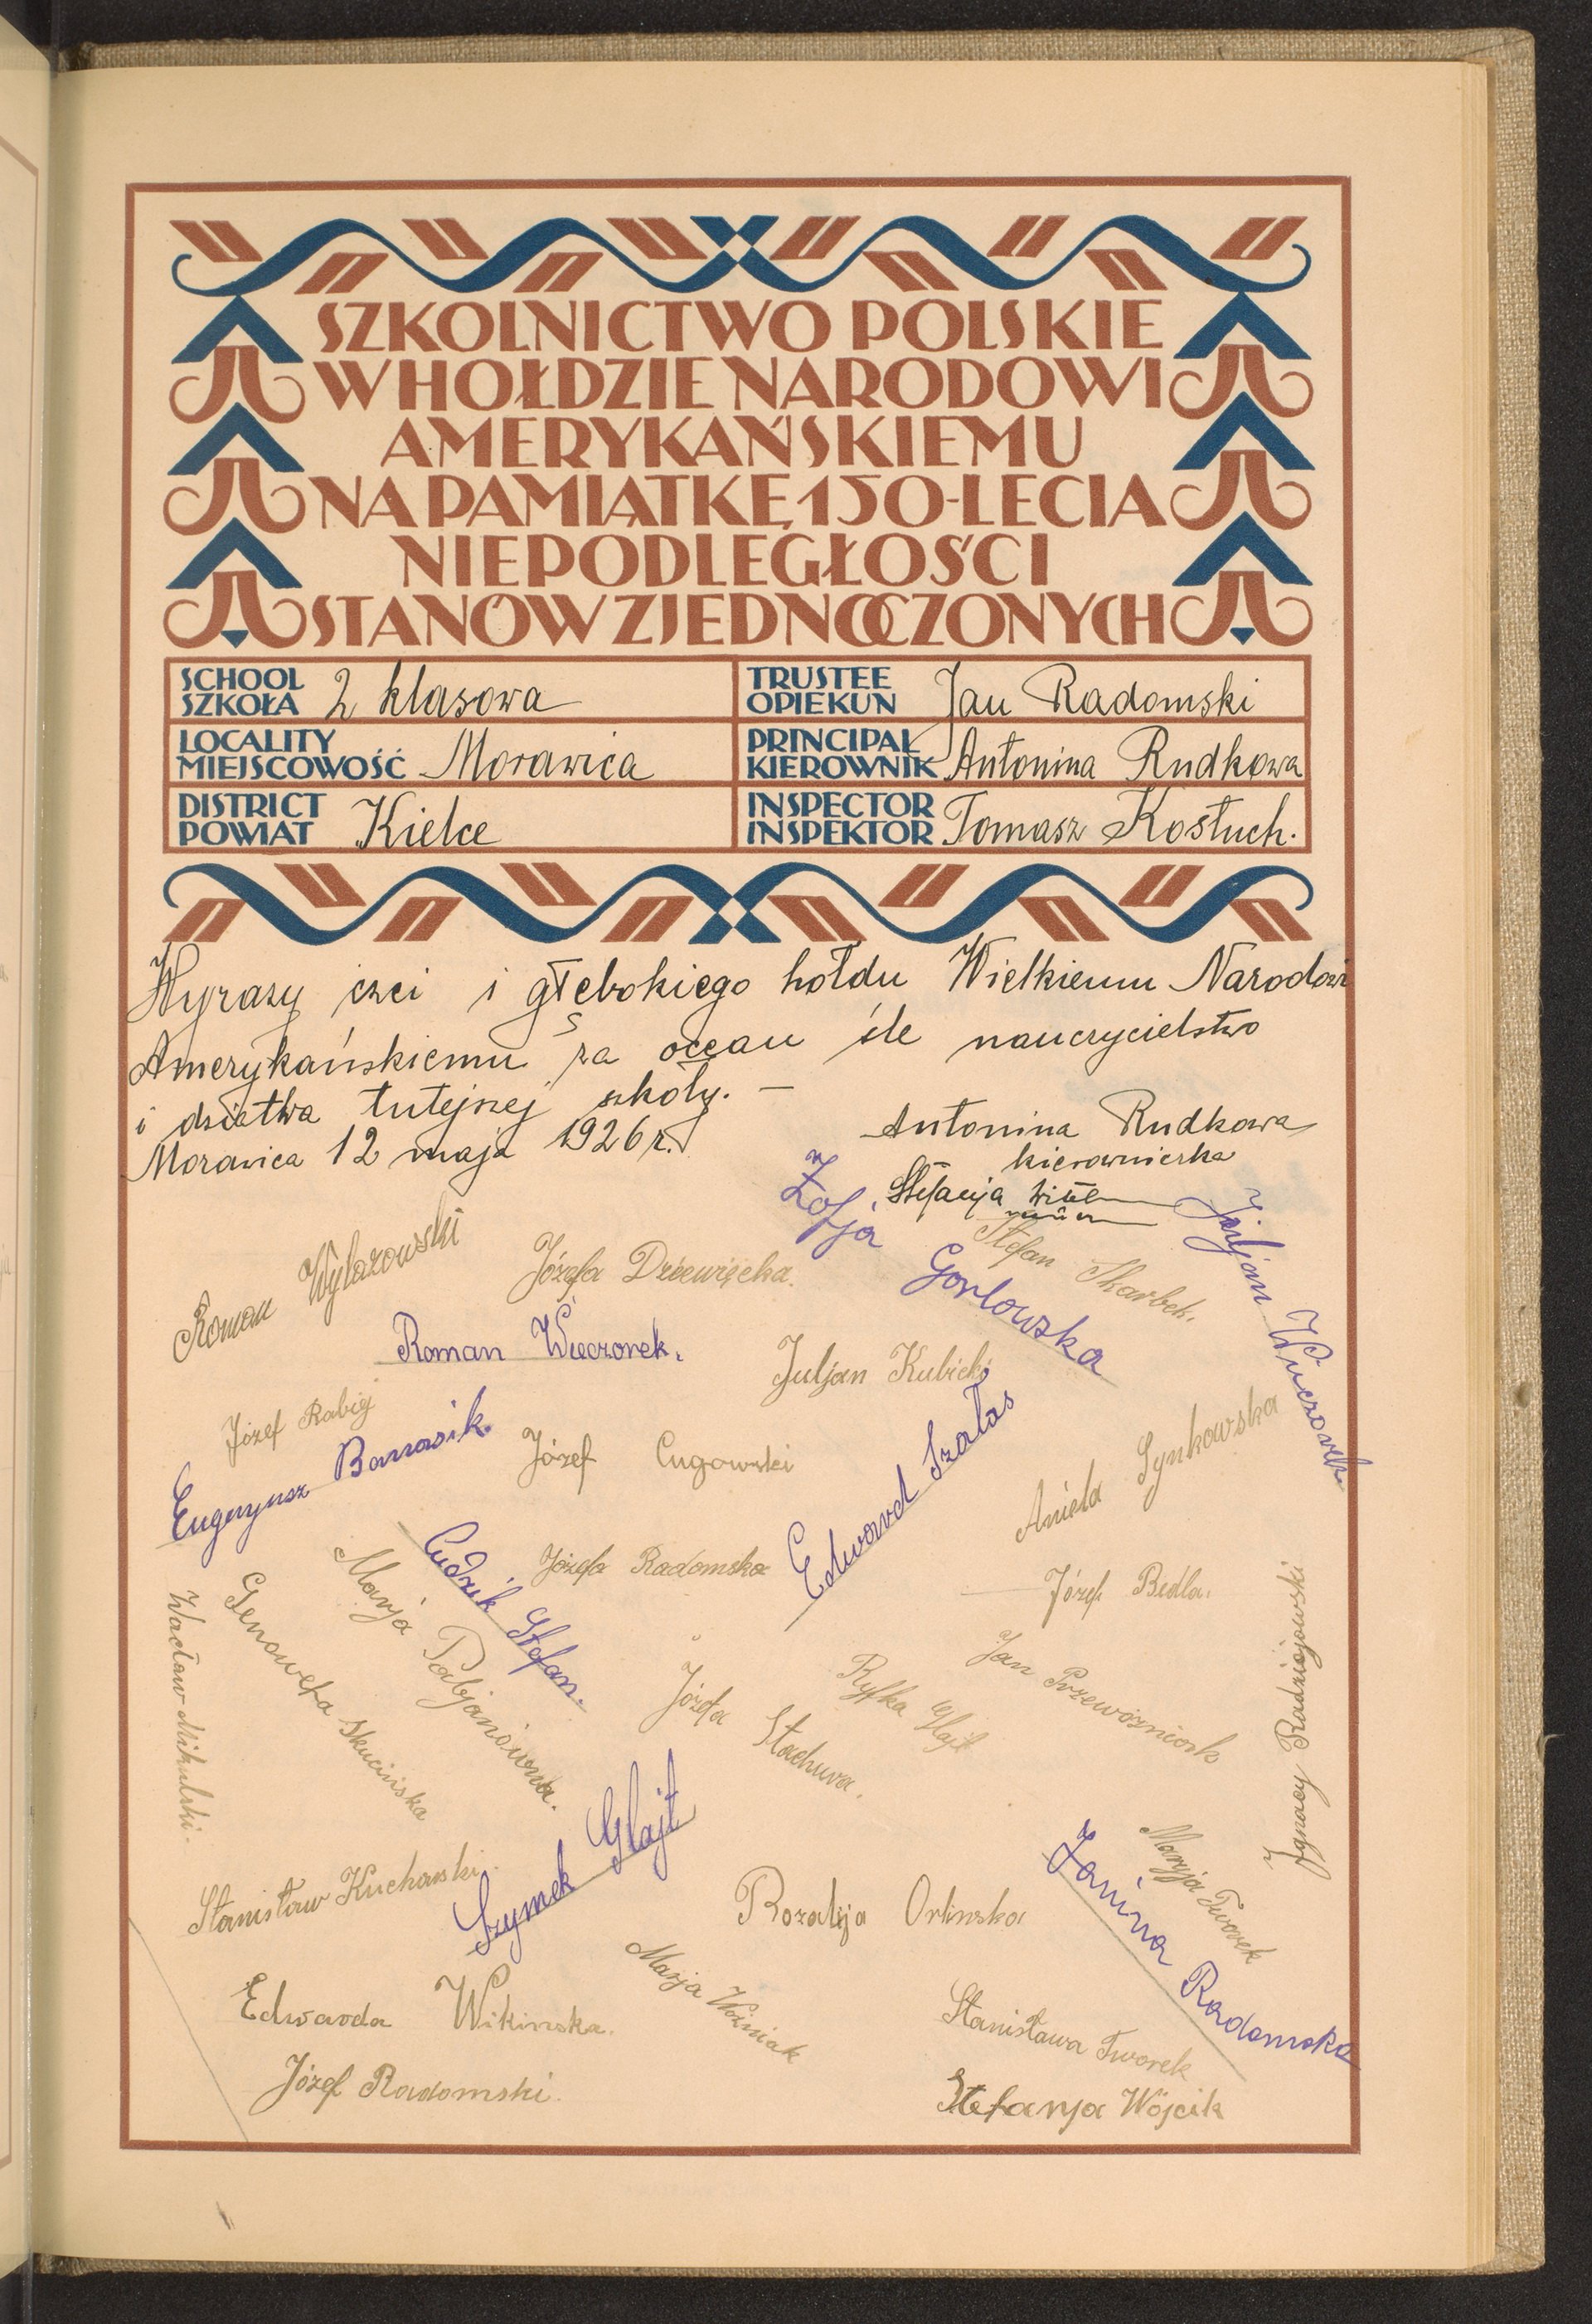 SZKOLNICTWO POLSKIE
W HOŁDZIE NARODOWI
AMERYKAŃSKIEMU
NA PAMIĄTKĘ 150-LECIA
NIEPODLEGŁOŚCI
STANÓW ZJEDNOCZONYCH
SCHOOL
SZKOŁA 2 klasowa
TRUSTEE
OPIEKUN Jan Radomski
LOCALITY
MIEJSCOWOŚĆ Morawica
PRINCIPAL
KIEROWNIK Antonina Rudkowa
DISTRICT
POWIAT Kielce
INSPECTOR
INSPEKTOR Tomasz Kostuch.
Wyrazy czci i głębokiego hołdu Wielkiemu Narodowi
Amerykańskiemu za ocean śle nauczycielstwo
i dziatwa tutejszej szkoły. —
Morawica 12 maja 1926 r.
Antonina Rudkowa
kierowniczka
Stefanja
Zofja Gorlowska
Juljan Wieczorek
Stefan Skarbek.
Roman Wylazowski
Józefa Drzewięcka.
Roman Wieczorek.
Juljan Kubicki
Józef Rabiej
Eugenjusz Banasik.
Józef Cugowski
Edward Szałas
Aniela Synkowska
Cudzik Stefan.
Józefa Radomska
Józef Bedla.
Marja Pabjanówna.
Genowefa Skucińska
Wacław Mikulski.
Józefa Stachura.
Ryfka Glajt
Jan Przewoźniak
Ignacy Radziejowski
Stanisław Kucharski.
Szymek Glajt
Rozalja Orlinska
Janina Radomska
Maryja Tworek
Edwarda Wikinska.
Marja Woźniak
Stanisława Tworek
Józef Radomski.
Stefanja Wójcik